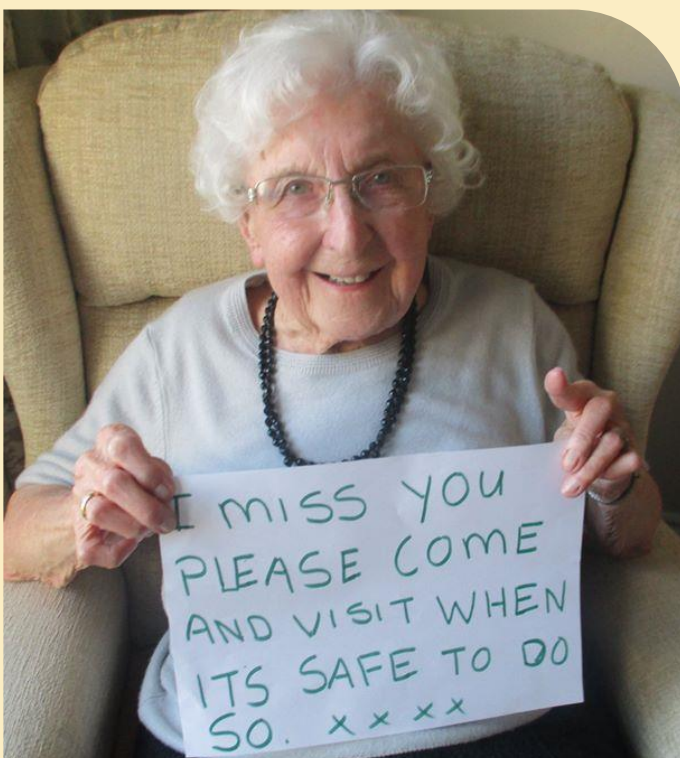 I MISS YOU
PLEASE COME
AND VISIT WHEN
ITS SAFE TO DO
SO. xxxx